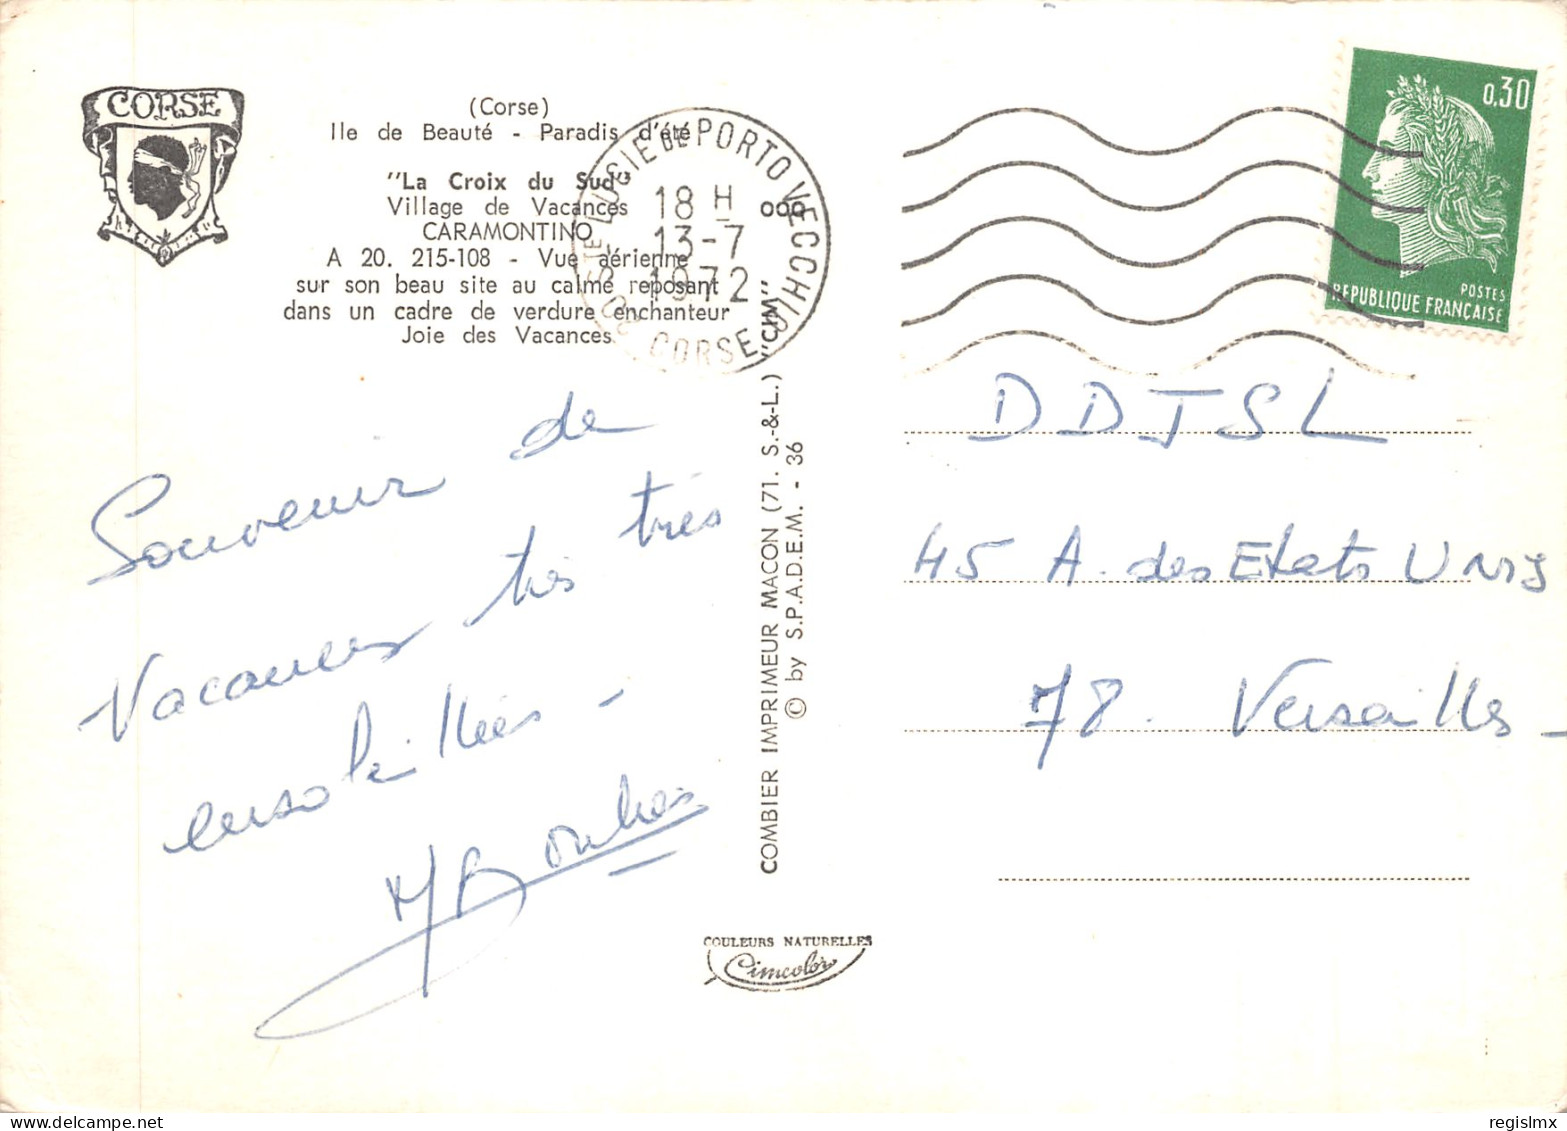 CORSE
(Corse)
Ile de Beauté - Paradis d'été
"La Croix du Sud"
Village de Vacances
CARAMONTINO
A 20. 215-108 - Vue aérienne
sur son beau site au calme reposant
dans un cadre de verdure enchanteur
Joie des Vacances
STE LUCIE DE PORTO VECCHIO
18 H
13-7
1972
20 CORSE
0,30
POSTES
REPUBLIQUE FRANÇAISE
Souvenir de
Vacances très très
ensoleillées -
COMBIER IMPRIMEUR MACON (71. S.-&-L.) "CIM"
© by S.P.A.D.E.M. - 36
DDJSL
45 A. des Etats Unis
78. Versailles -
COULEURS NATURELLES
Cimcolor
regislmx